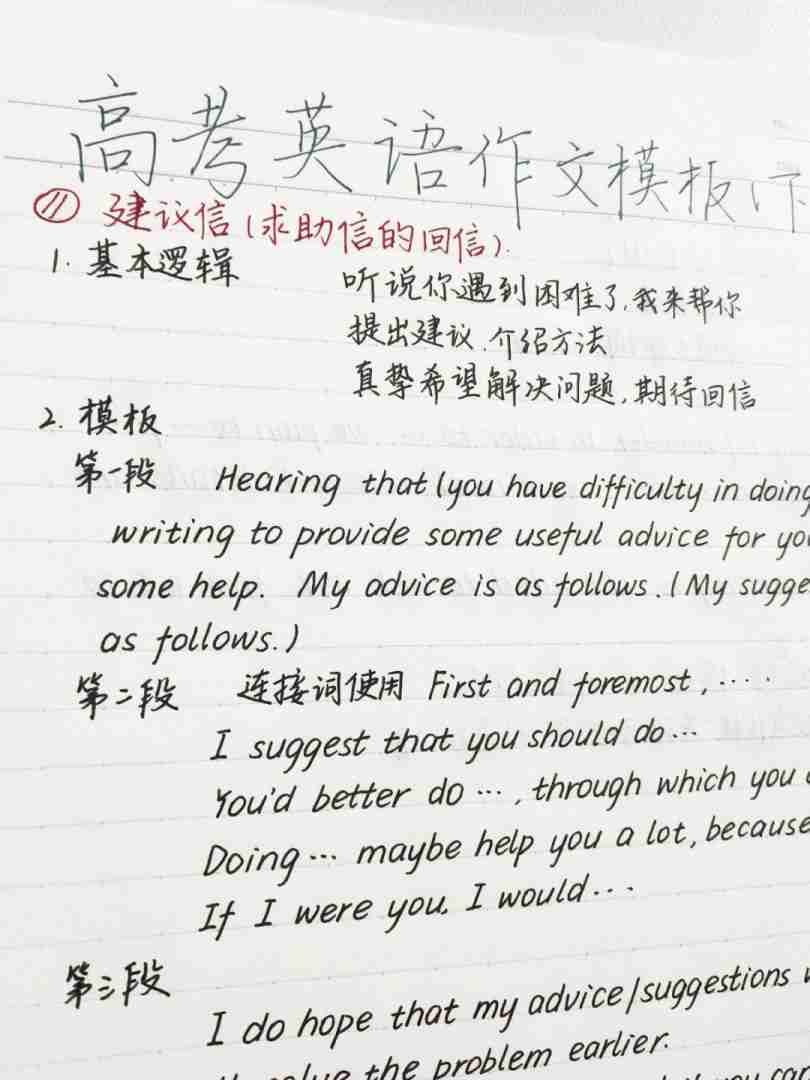 高考英语作文模板(下
⑪ 建议信(求助信的回信).
1. 基本逻辑
听说你遇到困难了,我来帮你
提出建议.介绍方法
真挚希望解决问题,期待回信
2. 模板
第一段 Hearing that (you have difficulty in doing
writing to provide some useful advice for yo
some help. My advice is as follows. (My sugge
as follows.)
第二段 连接词使用 First and foremost, ·····
I suggest that you should do ···
You'd better do ···, through which you
Doing ··· maybe help you a lot, because
If I were you, I would ···
第三段
I do hope that my advice/suggestions
solve the problem earlier.
you can